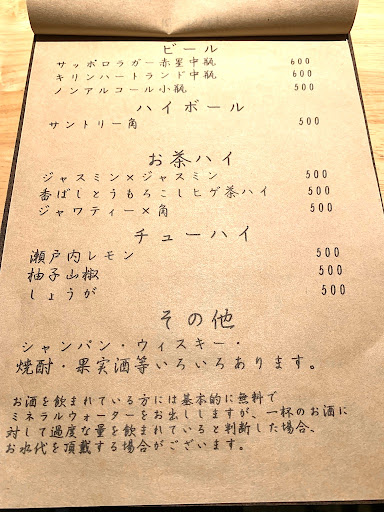 ビール
サッポロラガー赤星中瓶 600
キリンハートランド中瓶 600
ノンアルコール小瓶 500
ハイボール
サントリー角 500
お茶ハイ
ジャスミン×ジャスミン 500
香ばしとうもろこしヒゲ茶ハイ 500
ジャワティー×角 500
チューハイ
瀬戸内レモン 500
柚子山椒 500
しょうが 500
その他
シャンパン・ウィスキー・
焼酎・果実酒等いろいろあります。
お酒を飲まれている方には基本的に無料で
ミネラルウォーターをお出ししますが、一杯のお酒に
対して過度な量を飲まれていると判断した場合、
お水代を頂戴する場合がございます。